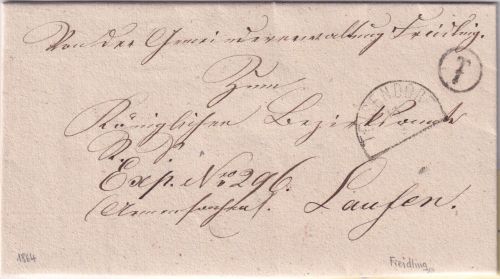 Von der Gemeindeverwaltung Freidling.
T
Zum
Königlichen Bezirksamte
R. S.
Exp. Nro 296.
(Armensache).
Laufen.
1864
Freidling